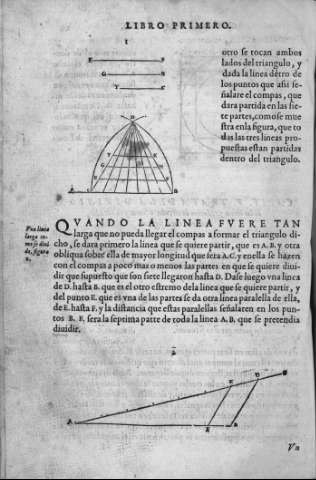 LIBRO PRIMERO.
1
otro se tocan ambos
lados del triangulo, y
dada la linea dẽtro de
los puntos que assi se-
ñalare el compas, que
dara partida en las sie-
te partes, como se mue
stra en la figura, que to
das las tres lineas pro-
puestas estan partidas
dentro del triangulo.
QVANDO LA LINEA FVERE TAN
larga que no pueda llegar el compas a formar el triangulo di-
cho, se dara primero la linea que se quiere partir, que es A.B. y otra
obliqua sobre ella de mayor longitud que sera A.C. y en ella se hazen
con el compas a poco mas o menos las partes en que se quiere diui-
dir que supuesto que son siete llegaron hasta D. Dase luego vna linea
de D. hasta B. que es el otro estremo de la linea que se quiere partir, y
del punto E. que es vna de las partes se da otra linea paralella de ella,
de E. hasta F. y la distancia que estas paralellas señalaren en los pun-
tos B. F. sera la septima parte de toda la linea A. B. que se pretendia
diuidir.
Vna linea
larga co-
mo se diui
de, figura
2.
2
Vn